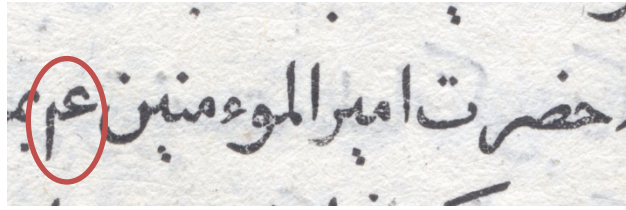 حضرت امیر الموءمنین عم